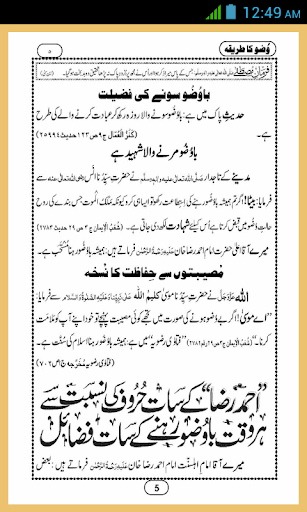 12:49 AM
وُضو کا طریقہ
۵
فرمانِ مصطفٰے
باوُضو سونے کی فضیلت
حدیثِ پاک میں ہے: باوُضو سونے والا روزہ رکھ کر عبادت کرنے والے کی طرح
ہے۔ (کنزُ العُمّال ج۹ ص۱۲۳ حدیث ۲۵۹۹۴)
باوُضو مرنے والا شہید ہے
مدینے کے تاجدار صلَّی اللہ تعالیٰ علیہ واٰلہٖ وسلَّم نے حضرتِ سیِّدُنا اَنَس رضی اللہ تعالیٰ عنہ سے
فرمایا: بیٹا! اگر تم ہمیشہ باوُضو رہنے کی اِستِطاعت رکھو تو ایسا ہی کرو کیونکہ ملکُ الموت جس بندے کی روح
حالتِ وُضو میں قبض کرتا ہے اُس کیلئے شہادت لکھ دی جاتی ہے۔ (شُعَبُ الْاِیمان ج۳ ص۲۹ حدیث ۲۷۸۳)
میرے آقا اعلیٰ حضرت امام احمد رضا خان علیہ رحمۃُ الرَّحمٰن فرماتے ہیں: ہمیشہ باوُضو رہنا مُستَحَب ہے۔
مُصیبتوں سے حِفاظت کا نُسخہ
اللہ عَزَّوَجَلَّ نے حضرتِ سیِّدُنا موسیٰ کلیمُ اللہ علٰی نَبِیِّنا وعلیہِ الصَّلٰوۃُ والسَّلام سے فرمایا:
”اے موسیٰ! اگر بے وُضو ہونے کی صورت میں تجھے کوئی مصیبت پہنچے تو خود اپنے آپ کو مَلامت
کرنا۔“ (شُعَبُ الْاِیمان ج۳ ص۲۹ رقم ۲۷۸۲) ”فتاوٰی رضویہ“ میں ہے: ہمیشہ باوُضو رہنا اسلام کی سنّت ہے۔
(فتاوٰی رضویہ مُخَرَّجہ ج۱ ص۷۰۲)
”احمد رضا“ کے سات حُرُوف کی نسبت سے
ہر وقت باوُضو رہنے کے سات فضائل
میرے آقا امامِ اہلسنّت امام احمد رضا خان علیہ رحمۃُ الرَّحمٰن فرماتے ہیں: بعض
5